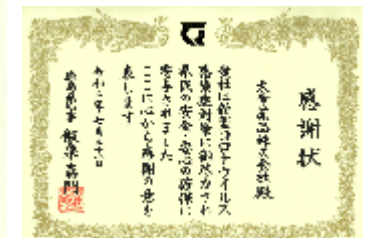 感謝状
大塚製薬株式会社殿
貴社は新型コロナウイルス
感染症対策に御尽力され
県民の安全・安心の確保に
寄与されました
ここに心から感謝の意を
表します
令和二年七月
徳島県知事 飯泉嘉門